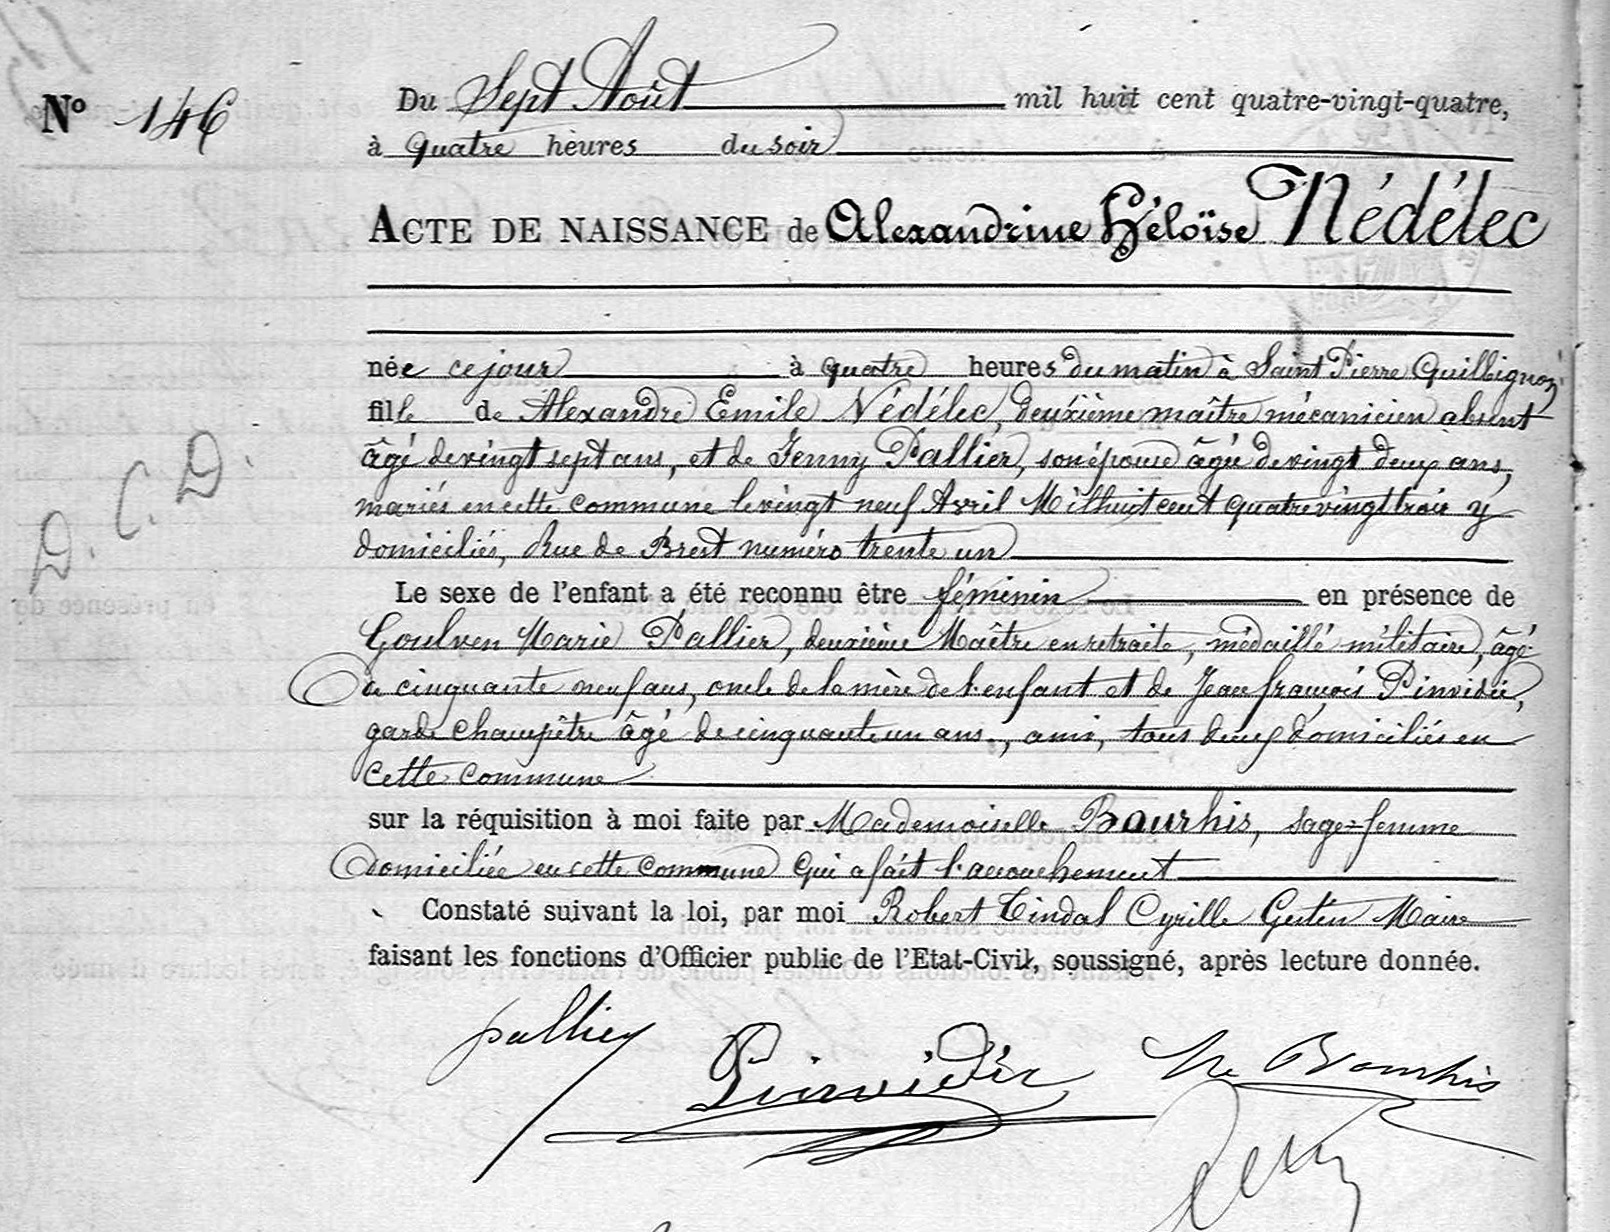 Nº 146
Du Sept Août mil huit cent quatre-vingt-quatre,
à quatre heures du soir
ACTE DE NAISSANCE de Alexandrine Héloïse Nédélec
née ce jour à quatre heures du matin à Saint Pierre Quilbignon
fille de Alexandre Emile Nédélec, deuxième maître mécanicien absent
âgé de vingt sept ans, et de Jenny Pallier, son épouse âgée de vingt deux ans,
mariés en cette commune le vingt neuf Avril Mil huit cent quatre vingt trois y
domiciliés, Rue de Brest numéro trente un
D. C. D.
Le sexe de l'enfant a été reconnu être féminin en présence de
Goulven Marie Pallier, deuxième Maître en retraite, médaillé militaire, âgé
de cinquante neuf ans, oncle de la mère de l'enfant et de Jean françois Pinvidic,
garde champêtre âgé de cinquante un ans, ami, tous deux domiciliés en
cette commune
sur la réquisition à moi faite par Mademoiselle Bourhis, sage=femme
domiciliée en cette commune qui a fait l'accouchement
Constaté suivant la loi, par moi Robert Tindal Cyrille Maire
faisant les fonctions d'Officier public de l'Etat-Civil, soussigné, après lecture donnée.
pallier
Pinvidic
Bourhis